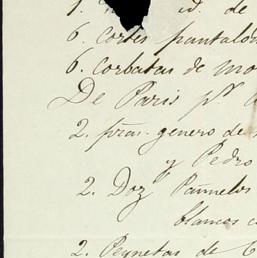 1. id. de
6. cortes pantalon
6. corbatas de mo
De Paris pr.
2. pzas. genero de
y Pedro
2. Doz Pañuelos
blancos
2. Peynetas de C